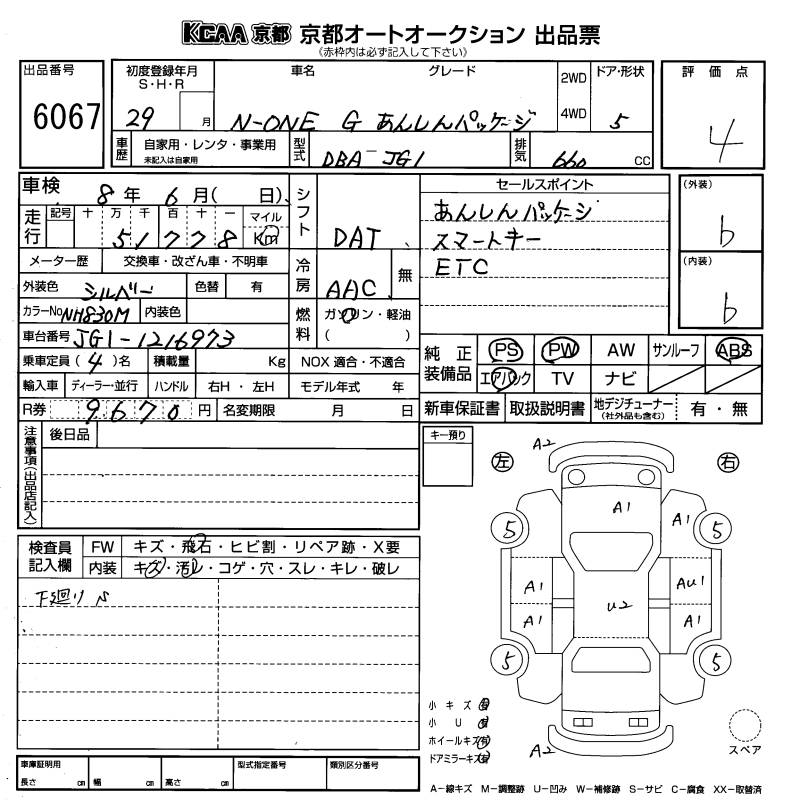 KCAA 京都 京都オートオークション 出品票
(赤枠内は必ず記入して下さい)
出品番号 初度登録年月 車名 グレード 2WD ドア・形状 評価点
S・H・R
6067 29 月 N-ONE G あんしんパッケージ 4WD 5 4
車歴 自家用・レンタ・事業用 型式 DBA-JG1 排気 660 CC
未記入は自家用
車検 8年 6月( 日) シフト DAT セールスポイント (外装)
走行 記号 十 万 千 百 十 一 マイル あんしんパッケージ b
51778 Km スマートキー
メーター歴 交換車・改ざん車・不明車 冷房 AAC 無 ETC (内装)
外装色 シルバー 色替 有 b
カラーNo NH830M 内装色 燃料 ガソリン・軽油
車台番号 JG1-1216973 ( )
乗車定員 (4)名 積載量 Kg NOX 適合・不適合 純正装備品 PS PW AW サンルーフ ABS
輸入車 ディーラー・並行 ハンドル 右H・左H モデル年式 年 エアバック TV ナビ
R券 9670円 名変期限 月 日 新車保証書 取扱説明書 地デジチューナー 有・無
(社外品も含む)
注意事項(出品店記入) 後日品 キー預り
A2
左 右
A1 A1
5 5
検査員記入欄 FW キズ・飛石・ヒビ割・リペア跡・X要
内装 キズ・汚レ・コゲ・穴・スレ・キレ・破レ
下廻り S
A1 AU1
U2
A1 A1
5 5
小キズ 有
小U 有
ホイールキズ 有
ドアミラーキズ 有
A2
スペア
車庫証明用 型式指定番号 類別区分番号
長さ cm 幅 cm 高さ cm
A-線キズ M-調整跡 U-凹み W-補修跡 S-サビ C-腐食 XX-取替済